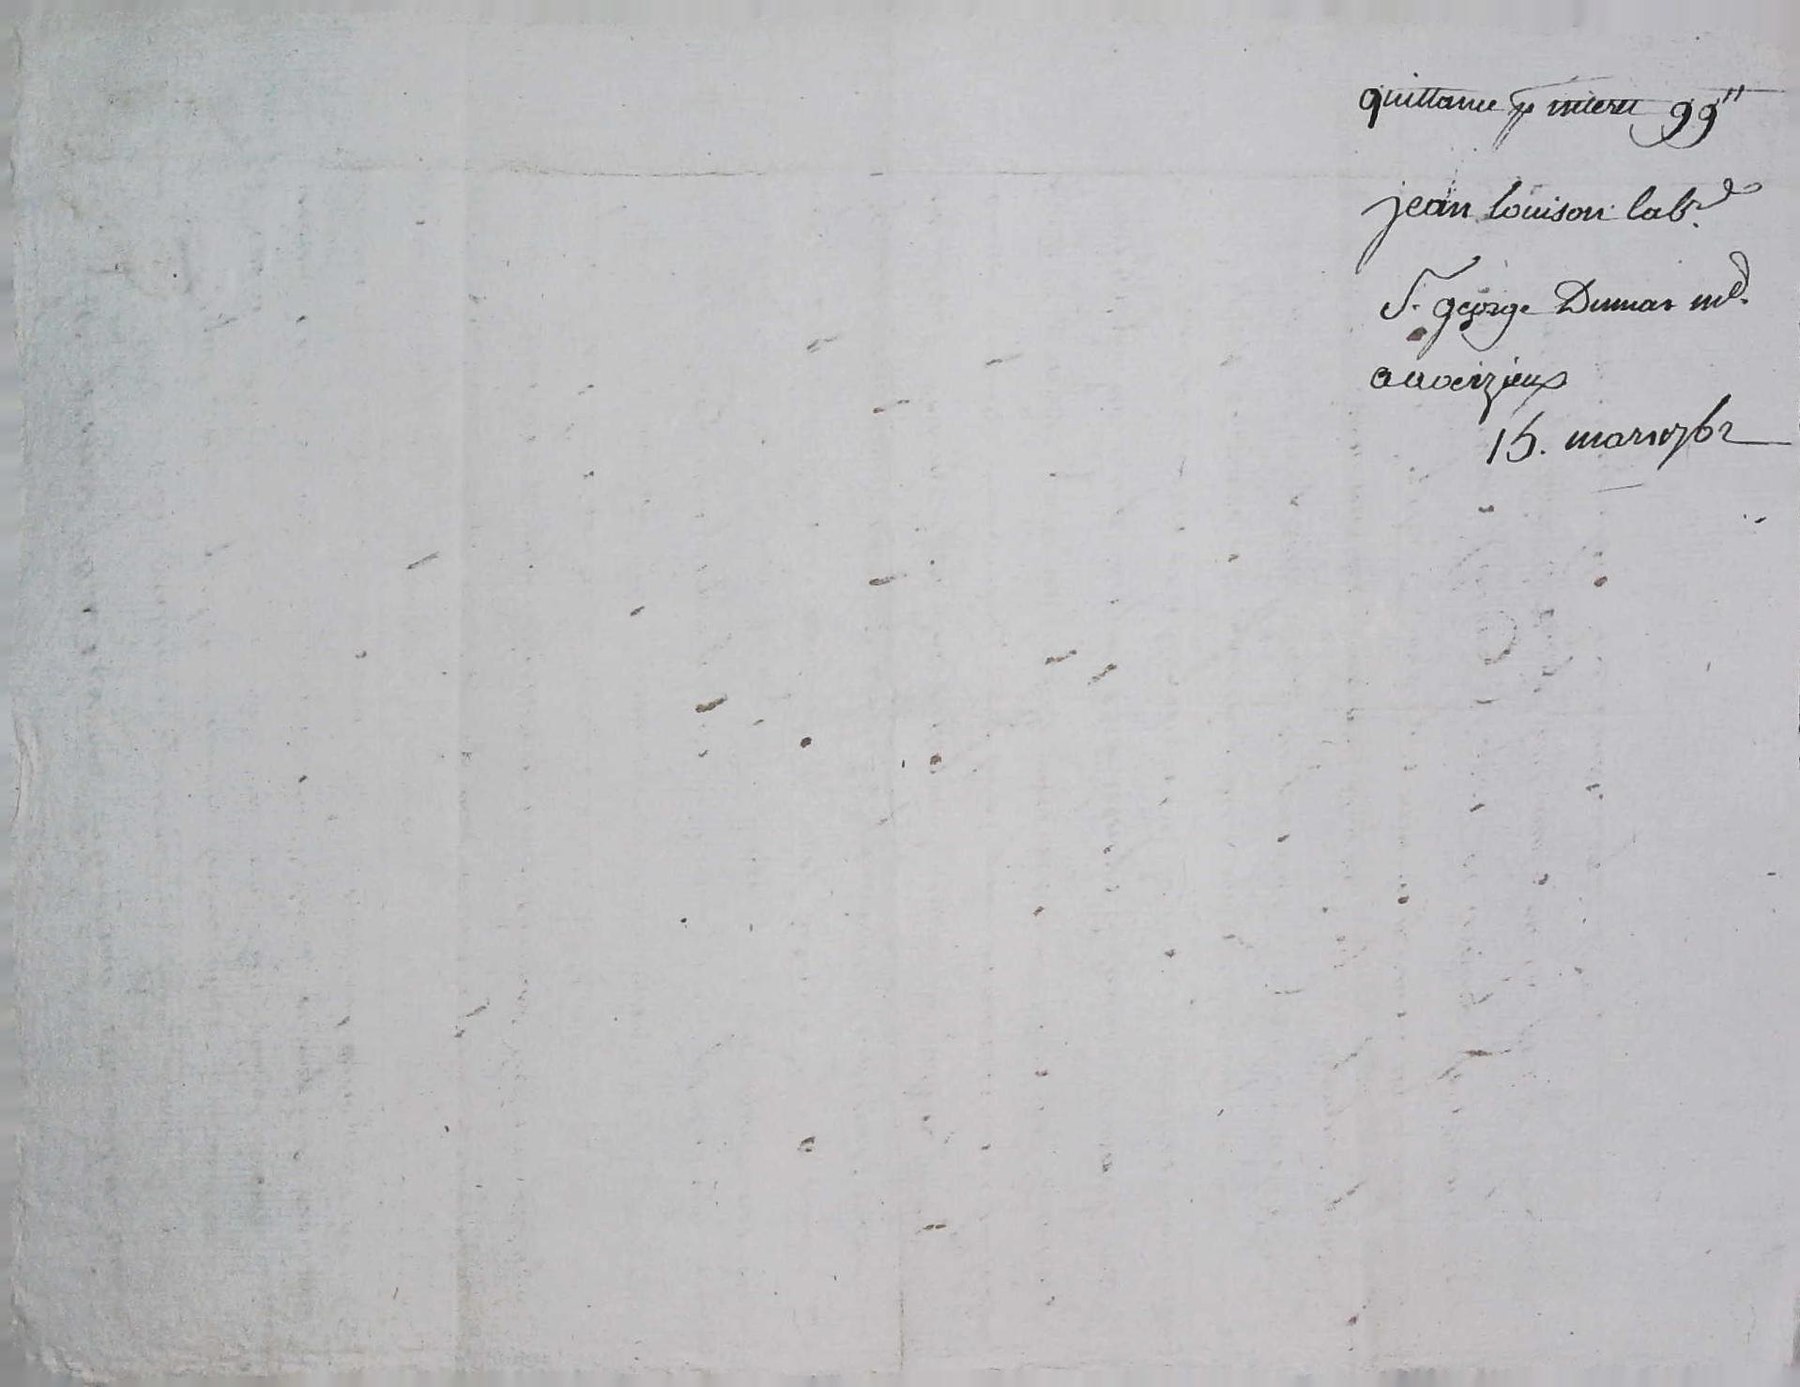 quittance p interet 99"
jean louison labr
Sr george Dumas md.
a voeizieux
15. mars 1762